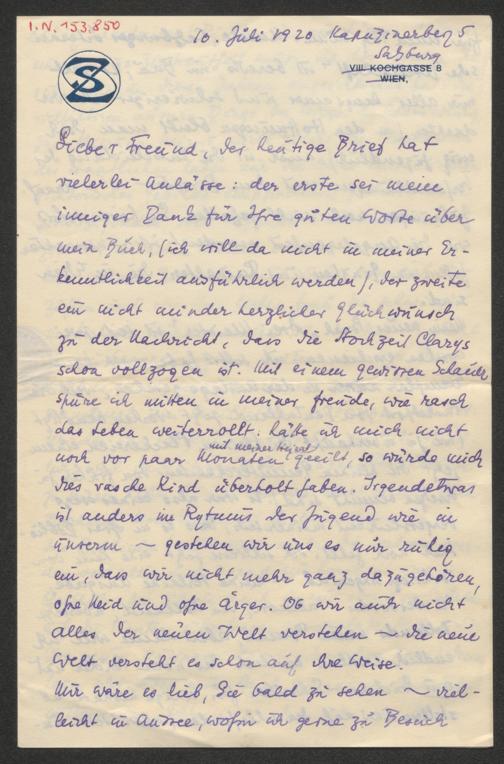 I.N. 153.850
10. Juli 1920 Kapuzinerberg 5
Salzburg
SZ
VIII. KOCHGASSE 8
WIEN,
Lieber Freund, der heutige Brief hat
vielerlei Anlässe: der erste sei mein
inniger Dank für Ihre guten Worte über
mein Buch, (ich will da nicht in meiner Er-
kenntlichkeit ausführlich werden), der zweite
ein nicht minder herzlicher Glückwunsch
zu der Nachricht, dass die Hochzeit Clarys
schon vollzogen ist. Mit einem gewissen Schauer
spüre ich mitten in meiner Freude, wie rasch
das Leben weiterrollt. Hätte ich mich nicht
mit meiner Heirat
noch vor paar Monaten geeilt, so würde mich
dies rasche Kind überholt haben. Irgendetwas
ist anders im Rytmus der Jugend wie in
unserm ~ gestehen wir uns es nur ruhig
ein, dass wir nicht mehr ganz dazugehören,
ohne Neid und ohne Ärger. Ob wir auch nicht
alles der neuen Welt verstehen ~ die neue
Welt versteht es schon auf ihre Weise.
Mir wäre es lieb, Sie bald zu sehen ~ viel-
leicht in Aussee, wohin ich gerne zu Besuch